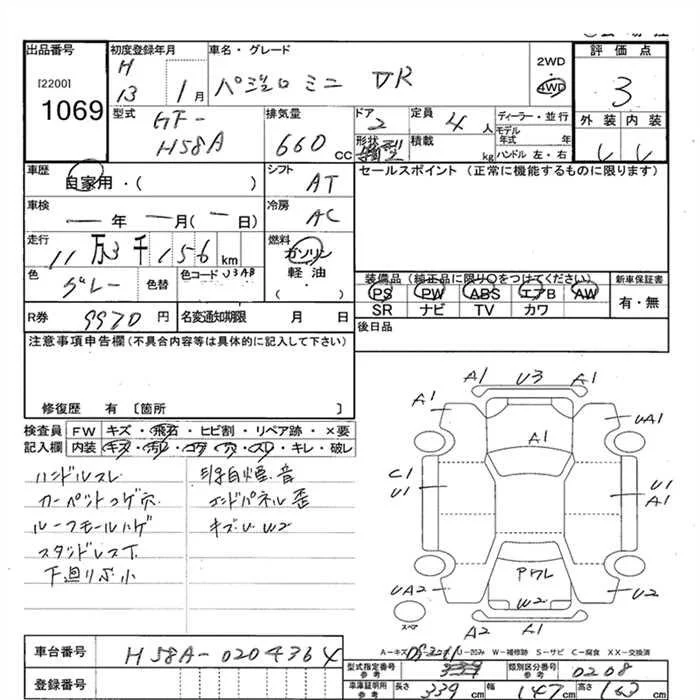 出品番号 初度登録年月 車名・グレード 評価点
[2200]
1069
H 13 1月 パジェロミニ VR
2WD
・
4WD
3
型式 排気量 ドア 定員 ディーラー・並行
GF-
H58A
660 CC
2
4人
モデル年式 年
形状 積載 kg ハンドル 左・右
外装 内装
車歴 自家用・( )
シフト AT
セールスポイント(正常に機能するものに限ります)
車検 — 年 — 月( — 日)
冷房 AC
走行 11万3千156km
燃料 ガソリン
軽油
・
( )
色 グレー 色替 色コード U3AB
装備品(純正品に限り○をつけてください) 新車保証書
PS PW ABS エアB AW
SR ナビ TV カワ
有・無
R券 9970円 名変通知期限 月 日
後日品
注意事項申告欄(不具合内容等は具体的に記入して下さい)
修復歴 有〔箇所 〕
検査員 FW キズ・飛石・ヒビ割・リペア跡・×要
記入欄 内装 キズ・汚レ・コゲ・穴・スレ・キレ・破レ
ハンドルスレ
カーペットコゲ穴
ルーフモールハゲ
下廻りサビ小
エンドパネル歪
キズU W2
A1 U3 A1
A1
UA1
A1
C1
U1
U1
A1
UA2
U2
W2
A2 A1
スペア
A-キズ U-凹み W-補修跡 S-サビ C-腐食 XX-交換済
車台番号 H58A-0204364
登録番号
型式指定番号 参考
類別区分番号 参考 0208
車庫証明用 参考 長さ 339cm 幅 147cm 高さ 163cm